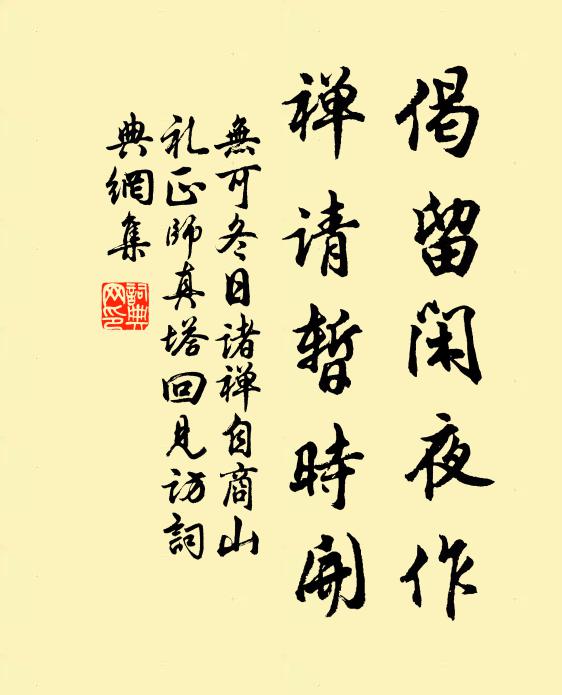 偈留闲夜作
禅请暂時開
無可冬日诸禅自商山
礼正師真塔回見访詞
典網集
詞典网印